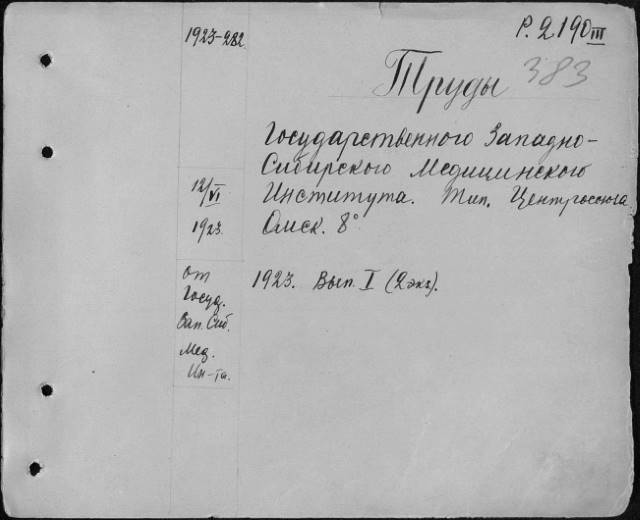 1923-282
Р. 2190III
Труды 383
Государственного Западно-
Сибирского Медицинского
Института. Тип. Центросоюза
Омск. 8°
12/VI
1923
от
Госуд.
Зап. Сиб.
Мед.
Ин-та.
1923. Вып. I (2 экз).